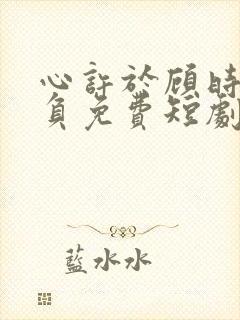 心許於顧時
負免費短劇
藍水水